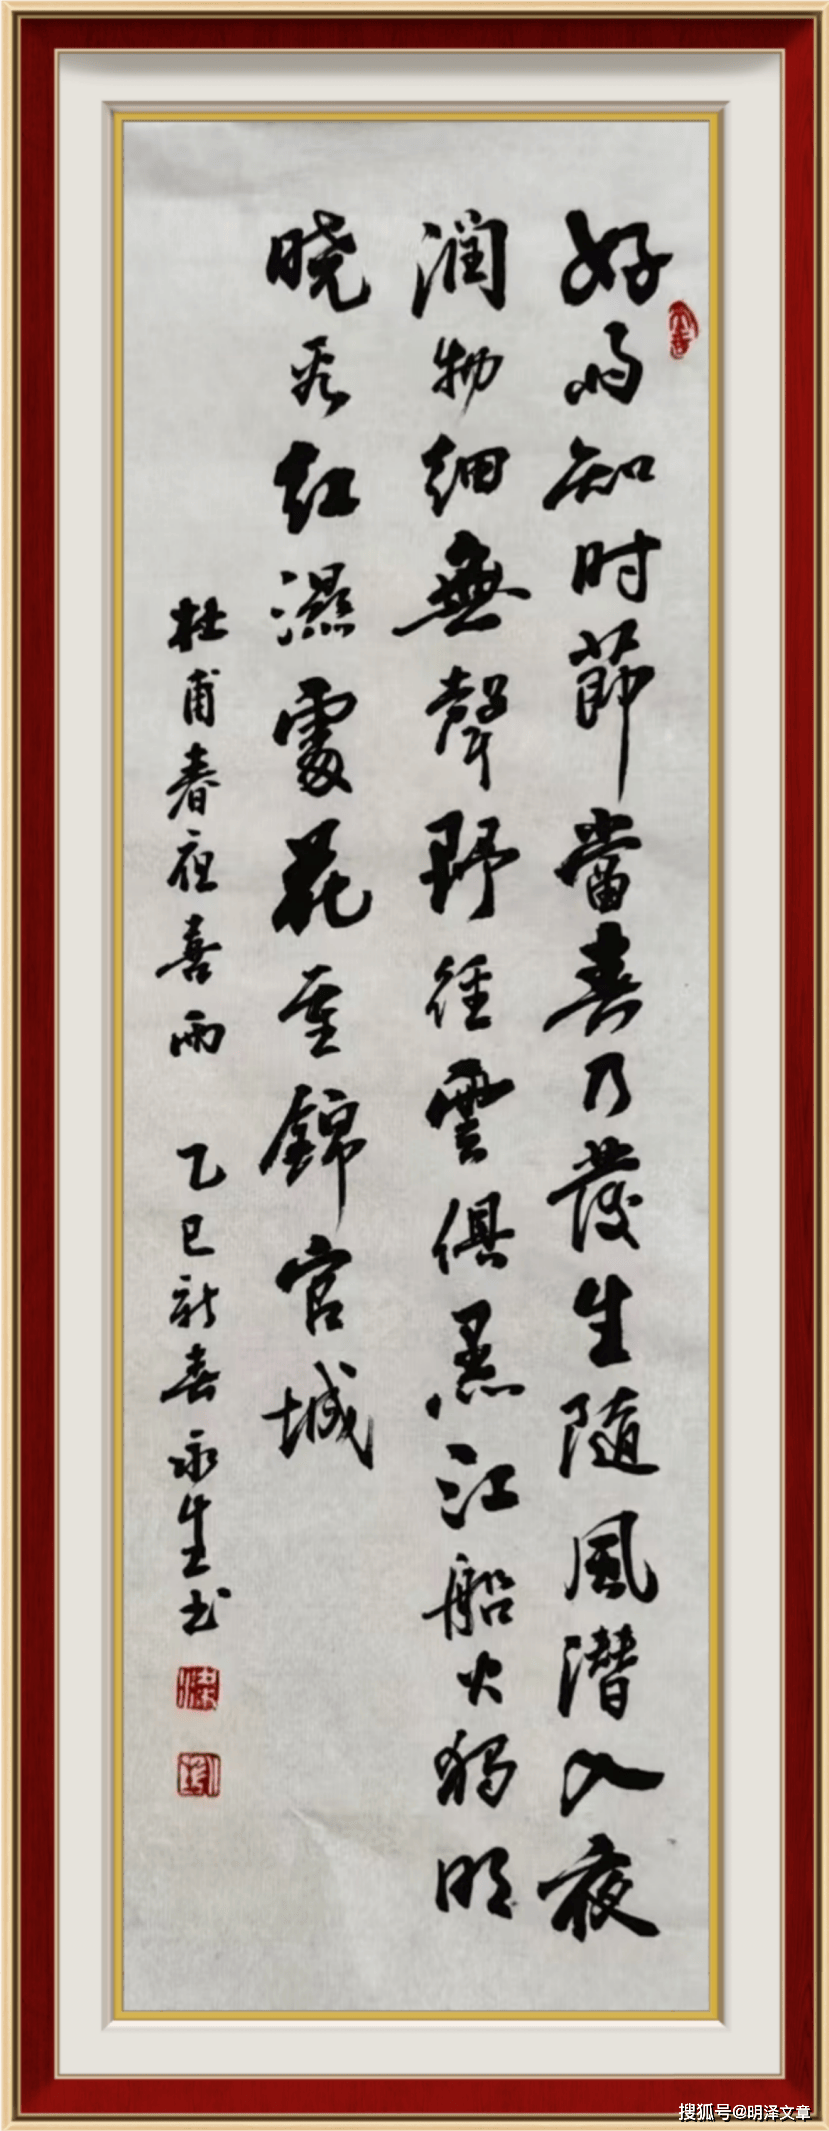 好雨知时節當春乃發生随風潜入夜
润物细無聲野径雲俱黑江船火獨明
晓看红濕處花重錦官城
杜甫春夜喜雨 乙巳新春永生书
搜狐号@明泽文章